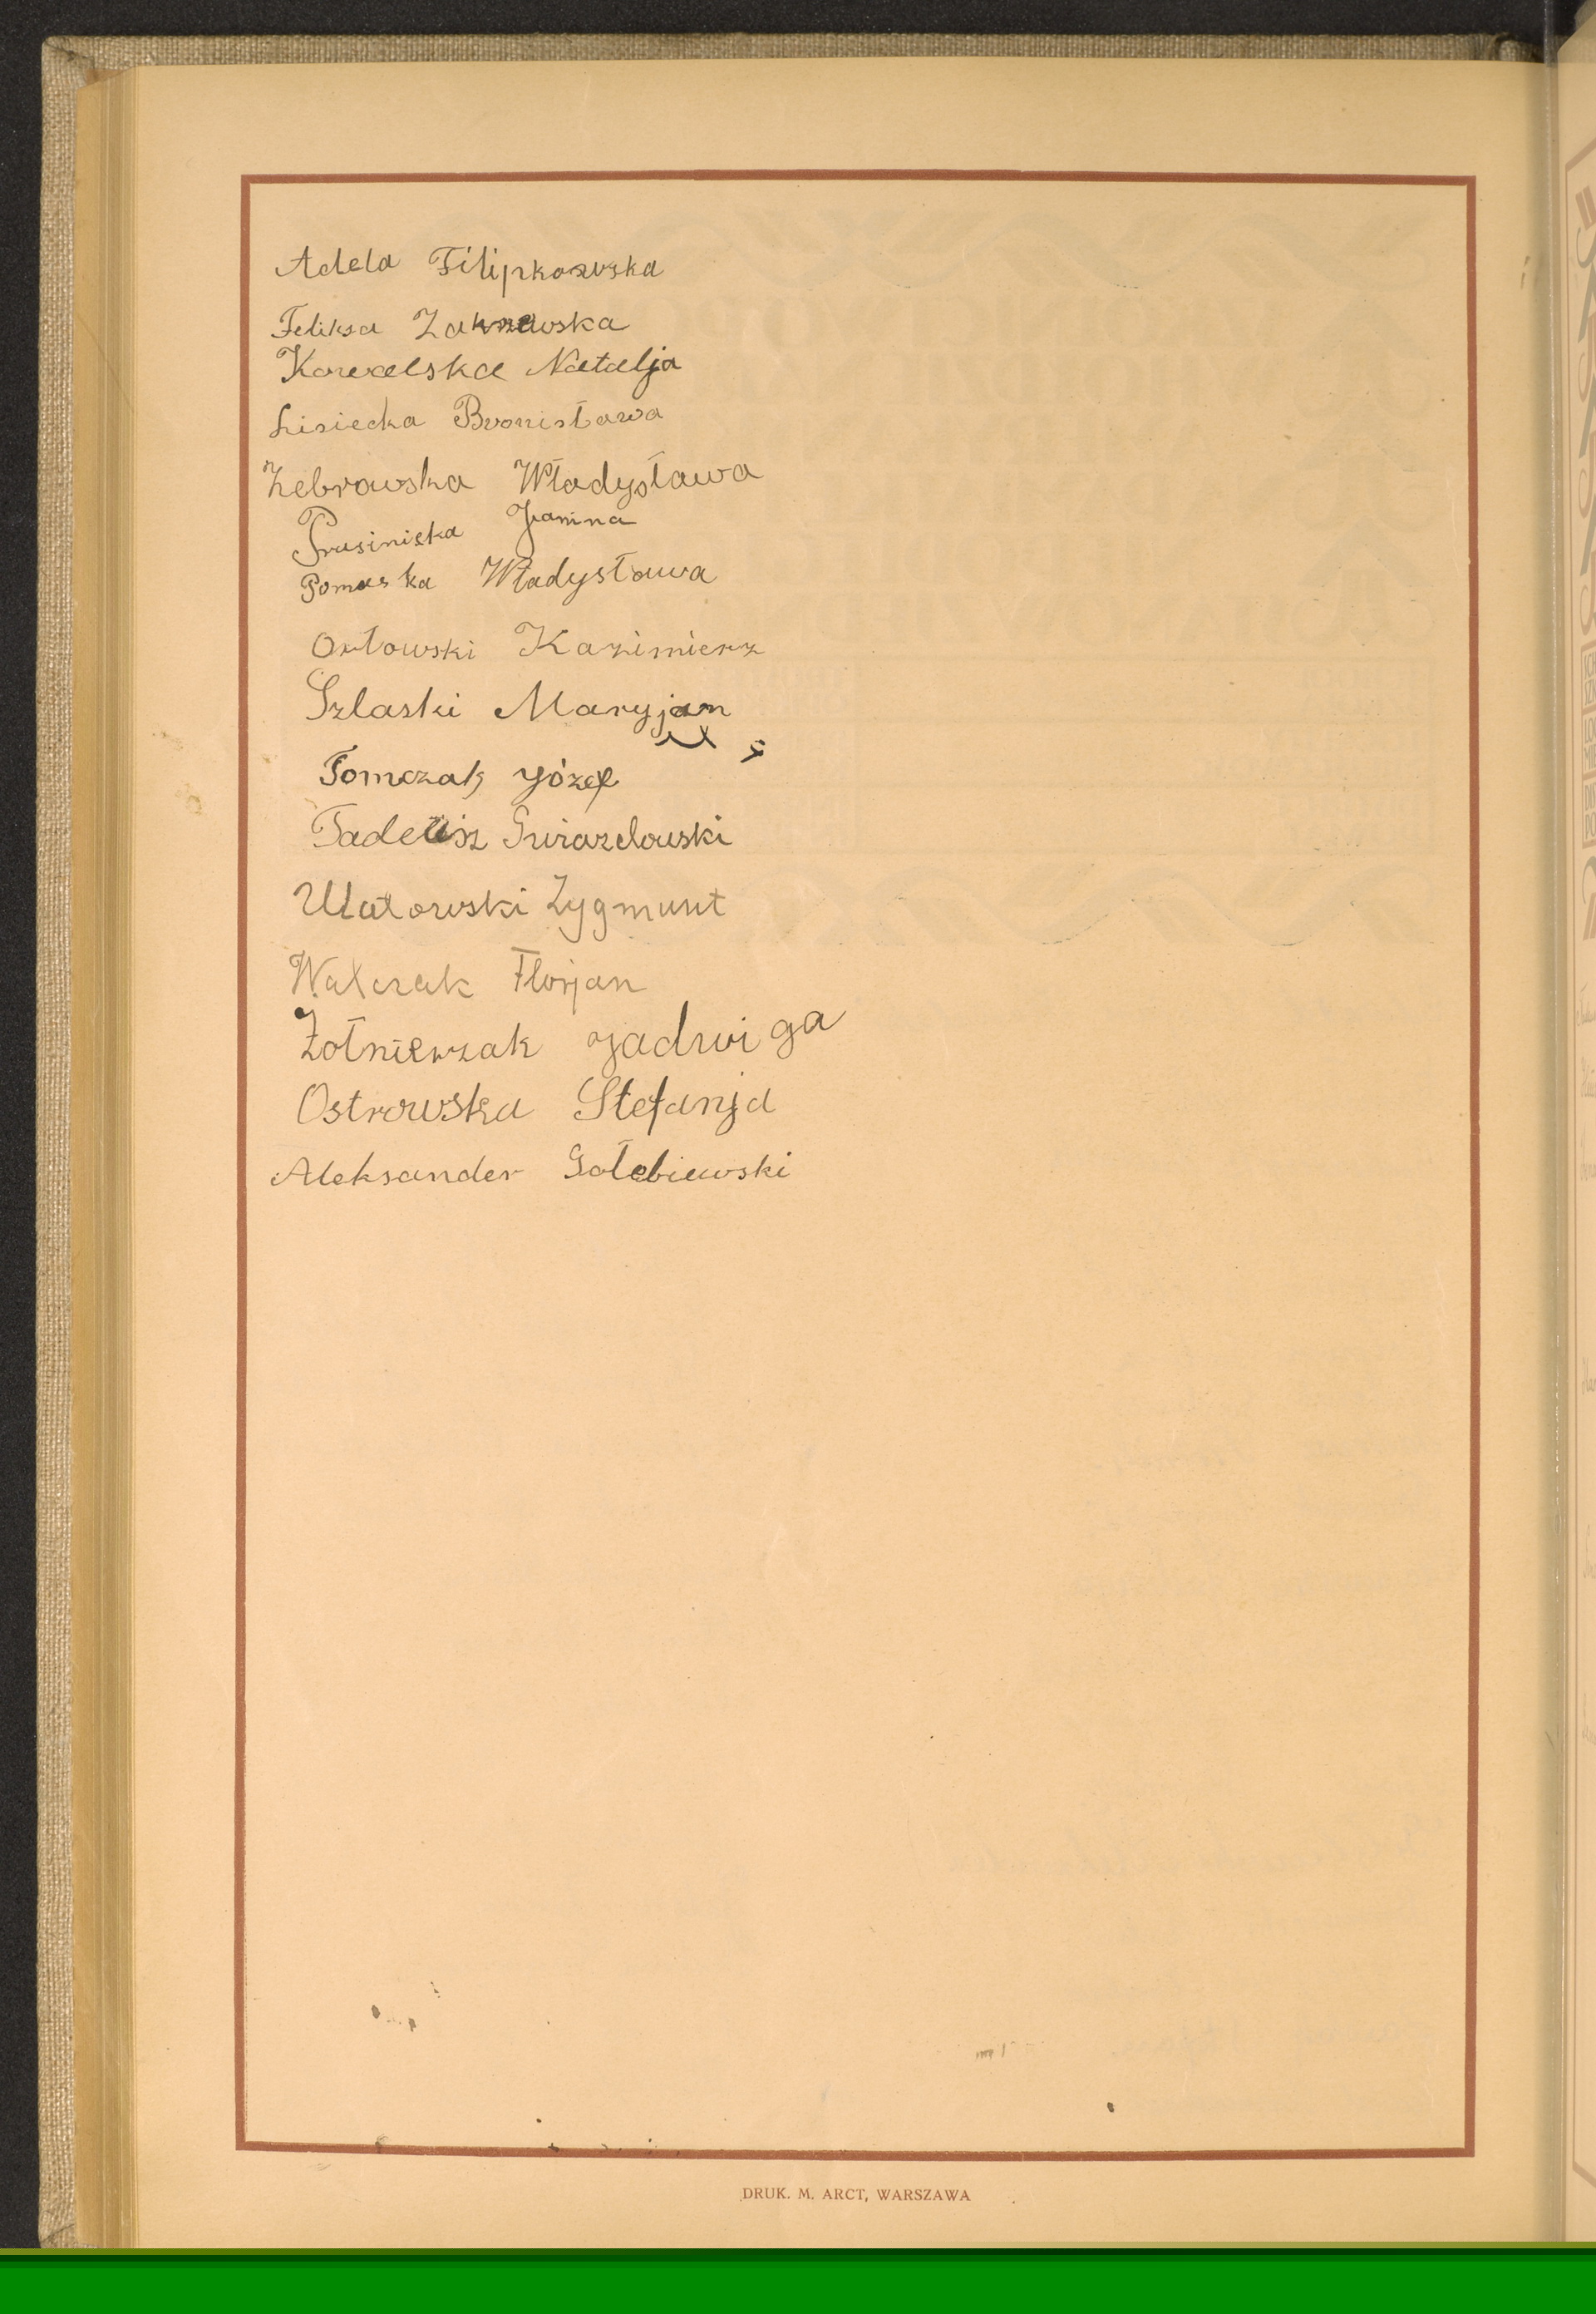 Adela Filipkowska
Feliksa Zakrzewska
Kowalska Natalja
Lisiecka Bronisława
Żebrowska Władysława
Prusinięka Janina
Pomaska Władysława
Orłowski Kazimierz
Szlaski Maryjan
Tomczak Józef
Tadeusz Gwiazdowski
Ulatowski Zygmunt
Walczak Florjan
Żołnierzak Jadwiga
Ostrowska Stefanja
Aleksander Gołebiewski
DRUK. M. ARCT, WARSZAWA